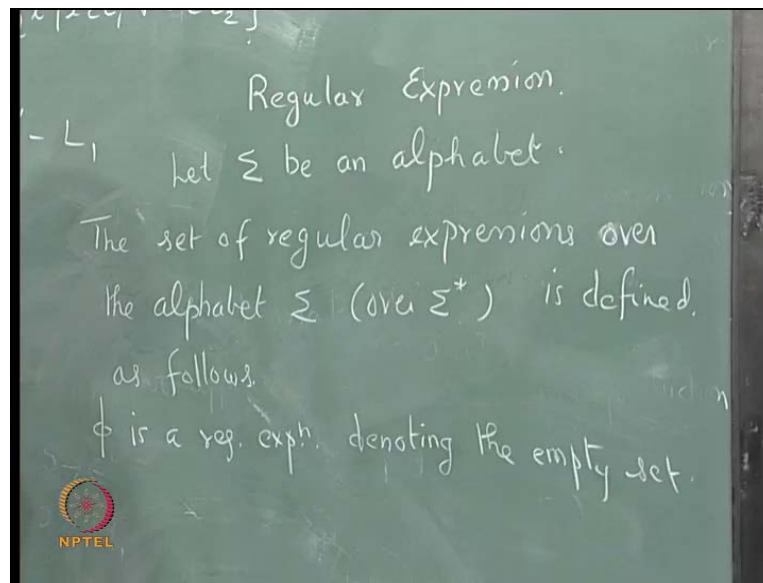 Regular Expression.
- L₁
Let Σ be an alphabet.
The set of regular expressions over
the alphabet Σ (over Σ*) is defined.
as follows.
ϕ is a reg. expn. denoting the empty set.
NPTEL